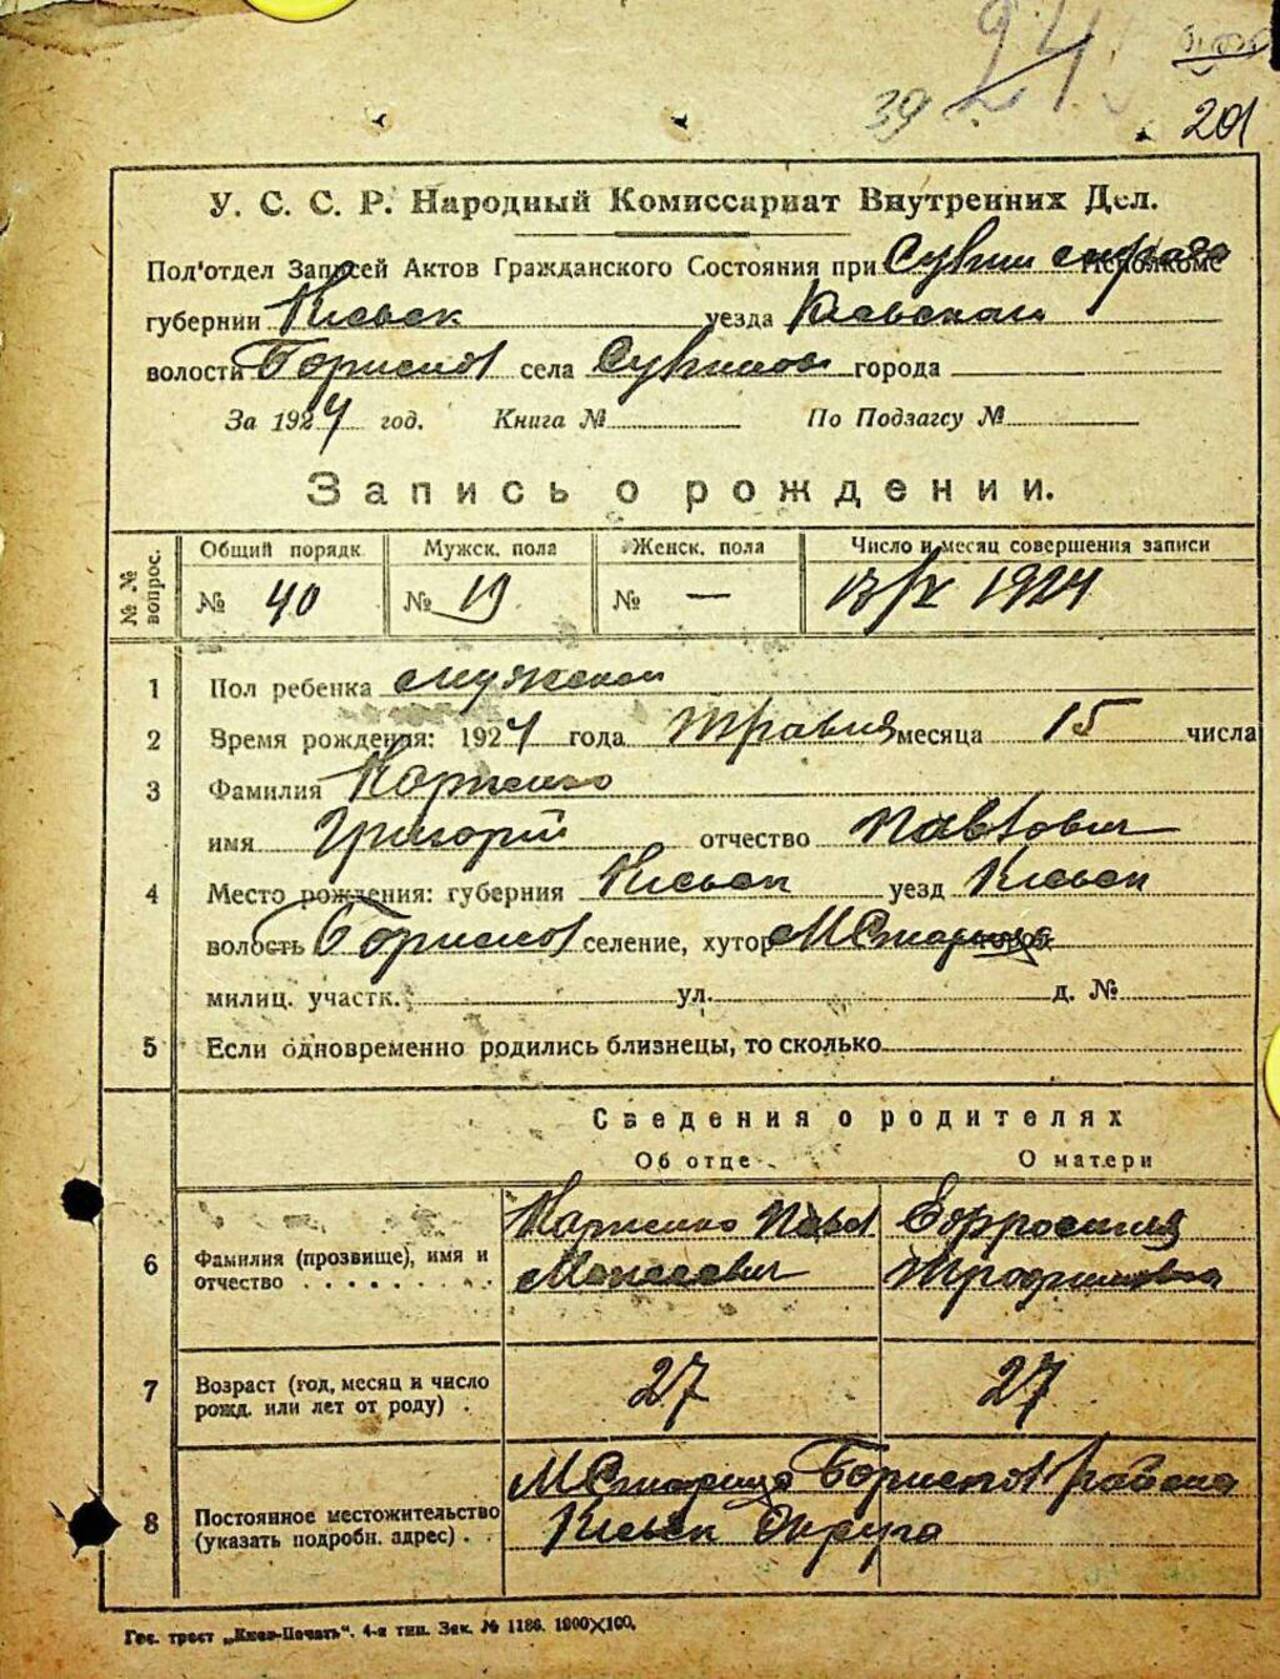 39 201
У. С. С. Р. Народный Комиссариат Внутренних Дел.
Под'отдел Записей Актов Гражданского Состояния при Исполкоме
губернии Киевск уезда Киевскаго
волости Бориспол села города
За 1924 год. Книга № По Подзагсу №
Запись о рождении.
№ № вопрос. Общий порядк. Мужск. пола Женск. пола Число и месяц совершения записи
№ 40 № 19 № — 1924
1 Пол ребенка мужской
2 Время рождения: 1924 года Травня месяца 15 числа
3 Фамилия
имя Григорій отчество Павлович
4 Место рождения: губерния Киевск уезд Киевск
волость Бориспол селение, хутор М Старица
милиц. участк. ул. д. №
5 Если одновременно родились близнецы, то сколько
Сведения о родителях
Об отце О матери
6 Фамилия (прозвище), имя и отчество Павел Моисеевич Ефросиния Трофимовна
7 Возраст (год, месяц и число рожд. или лет от роду) 27 27
8 Постоянное местожительство (указать подробн. адрес) М Старица Бориспол района
Киевск Округа
Гос. трест „Киев-Печать“. 4-я тип. Зак. № 1186. 1000×100.